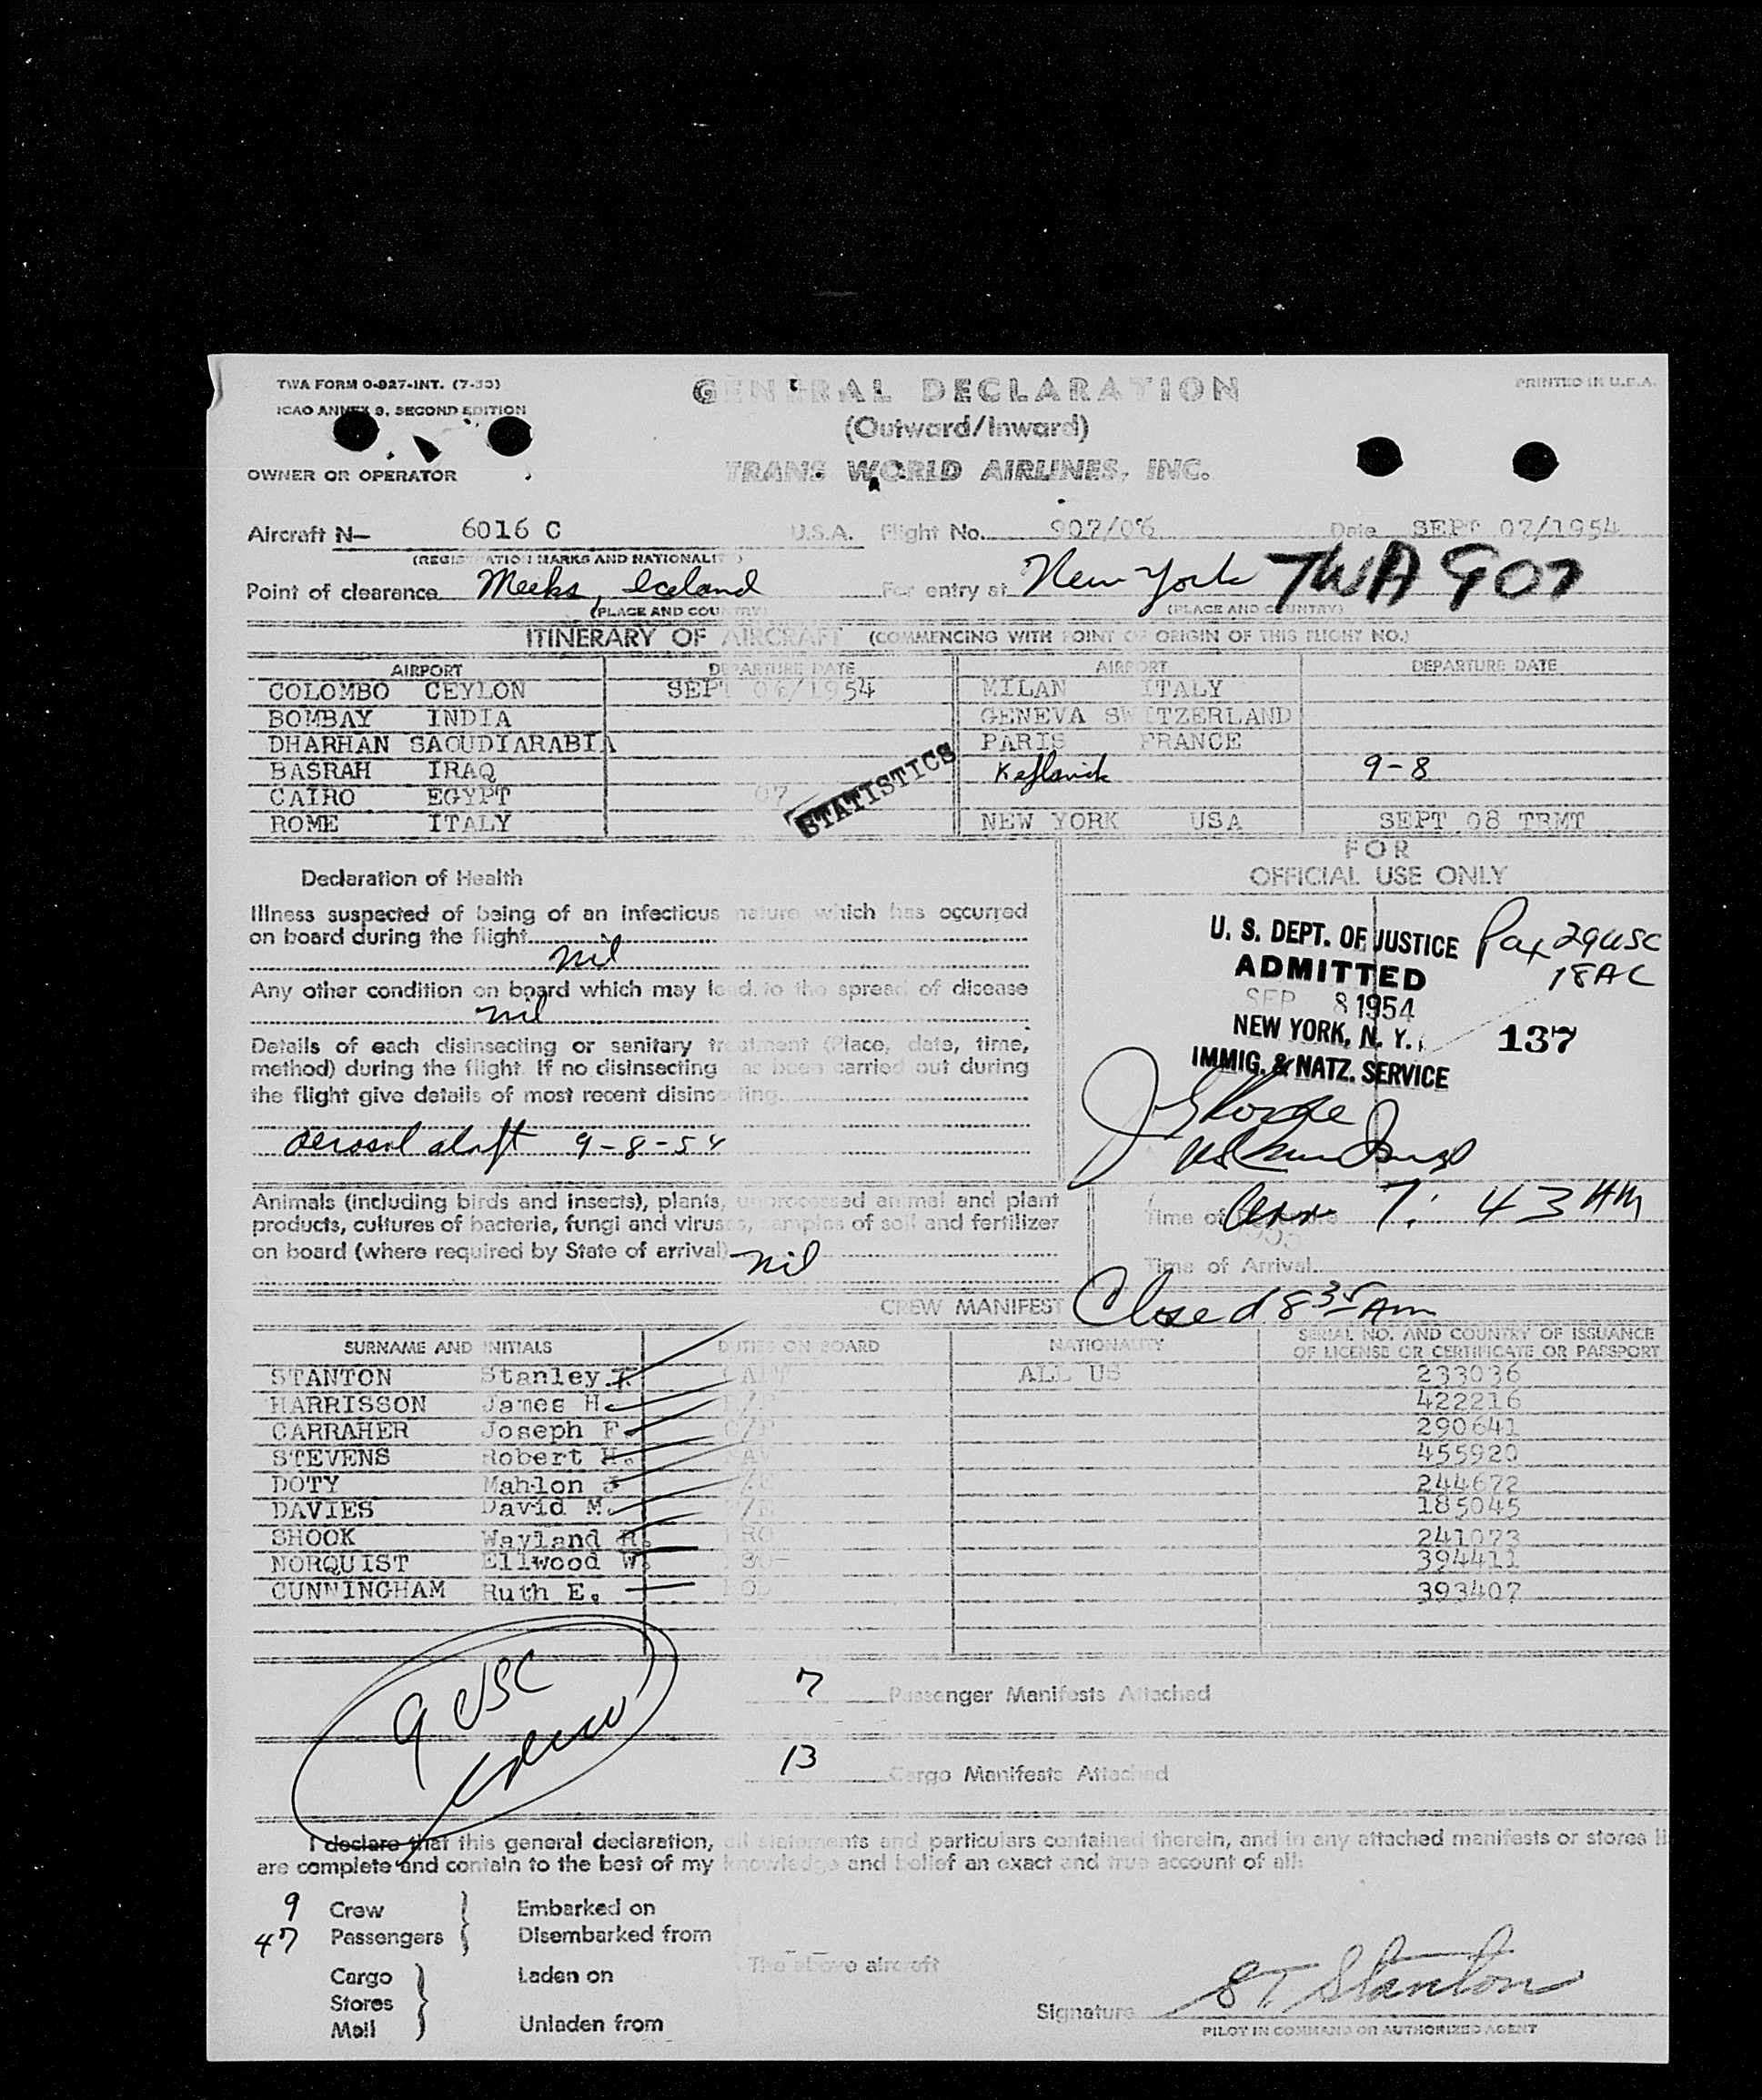 TWA FORM O-927-INT. PRINTED IN U.S.A.
ICAO ANNEX 9, SECOND EDITION
GENERAL DECLARATION
(Outward/Inward)
OWNER OR OPERATOR TRANS WORLD AIRLINES, INC.
Aircraft N- 6016 C U.S.A. Flight No. 907/06 Date SEPT 07/1954
(REGISTRATION MARKS AND NATIONALITY)
Point of clearance Meeks, Iceland For entry at New York TWA 907
(PLACE AND COUNTRY) (PLACE AND COUNTRY)
ITINERARY OF AIRCRAFT (COMMENCING WITH POINT OF ORIGIN OF THIS FLIGHT NO.)
AIRPORT DEPARTURE DATE AIRPORT DEPARTURE DATE
COLOMBO CEYLON SEPT 06/1954 MILAN ITALY
BOMBAY INDIA GENEVA SWITZERLAND
DHARHAN SAOUDIARABIA PARIS FRANCE
BASRAH IRAQ Keflavik 9-8
CAIRO EGYPT 07
ROME ITALY NEW YORK USA SEPT 08 TRMT
STATISTICS
FOR
OFFICIAL USE ONLY
Declaration of Health
Illness suspected of being of an infectious nature which has occurred
on board during the flight
nil
Any other condition on board which may lead to the spread of disease
nil
Details of each disinsecting or sanitary treatment (Place, date, time,
method) during the flight. If no disinsecting has been carried out during
the flight give details of most recent disinsecting
aerosol aloft 9-8-54
U. S. DEPT. OF JUSTICE
ADMITTED
SEP 8 1954
NEW YORK, N. Y.
IMMIG. & NATZ. SERVICE
Pax 29 USC
18 AC
137
Animals (including birds and insects), plants, unprocessed animal and plant
products, cultures of bacteria, fungi and viruses, samples of soil and fertilizer
on board (where required by State of arrival) nil
Time of Arr 7:43 AM
Time of Arrival
Closed 8 35 AM
CREW MANIFEST
SURNAME AND INITIALS DUTIES ON BOARD NATIONALITY SERIAL NO. AND COUNTRY OF ISSUANCE
OF LICENSE OR CERTIFICATE OR PASSPORT
STANTON Stanley T. CAPT ALL US 233036
HARRISSON James H. 422216
CARRAHER Joseph F. 290641
STEVENS Robert H. 455920
DOTY Mahlon J 244672
DAVIES David M. 185045
SHOOK Wayland R. 241073
NORQUIST Ellwood W. 394411
CUNNINGHAM Ruth E. 393407
9 USC
crew
7 Passenger Manifests Attached
13 Cargo Manifests Attached
I declare that this general declaration, all statements and particulars contained therein, and in any attached manifests or stores li
are complete and contain to the best of my knowledge and belief an exact and true account of all:
9 Crew Embarked on
47 Passengers Disembarked from
The above aircraft
Cargo Laden on
Stores
Mail Unladen from
Signature ST Stanton
PILOT IN COMMAND OR AUTHORIZED AGENT